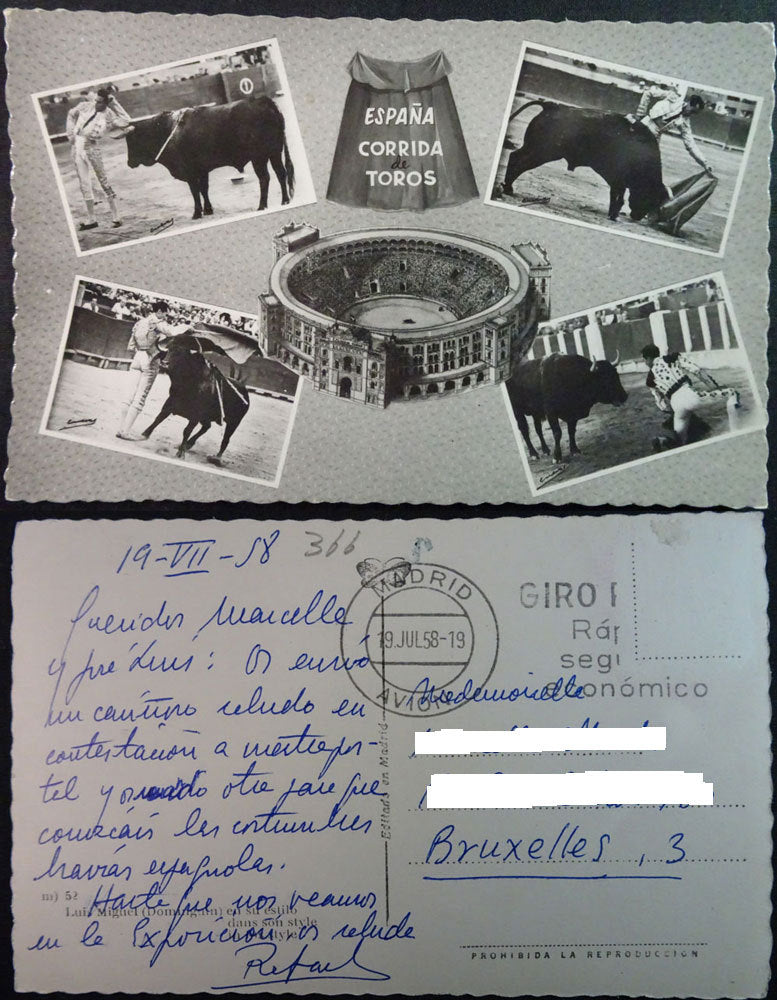 ESPAÑA
CORRIDA
de
TOROS
19-VII-58
366
MADRID
19.JUL58-19
AVION
GIRO
Ráp
segu
económico
Queridos Marcelle
y José Luis: Os envio
un cariñoso saludo en
contestación a vuestra pos-
tal y os mando otra para que
conozcáis las costumbres
bravías españolas.
Hasta que nos veamos
en la Exposición, os saluda
Rafael
Mademoiselle
Bruxelles, 3
Editado en Madrid
m) 52
Luis Miguel (Dominguin) en su estilo
dans son style
PROHIBIDA LA REPRODUCCION